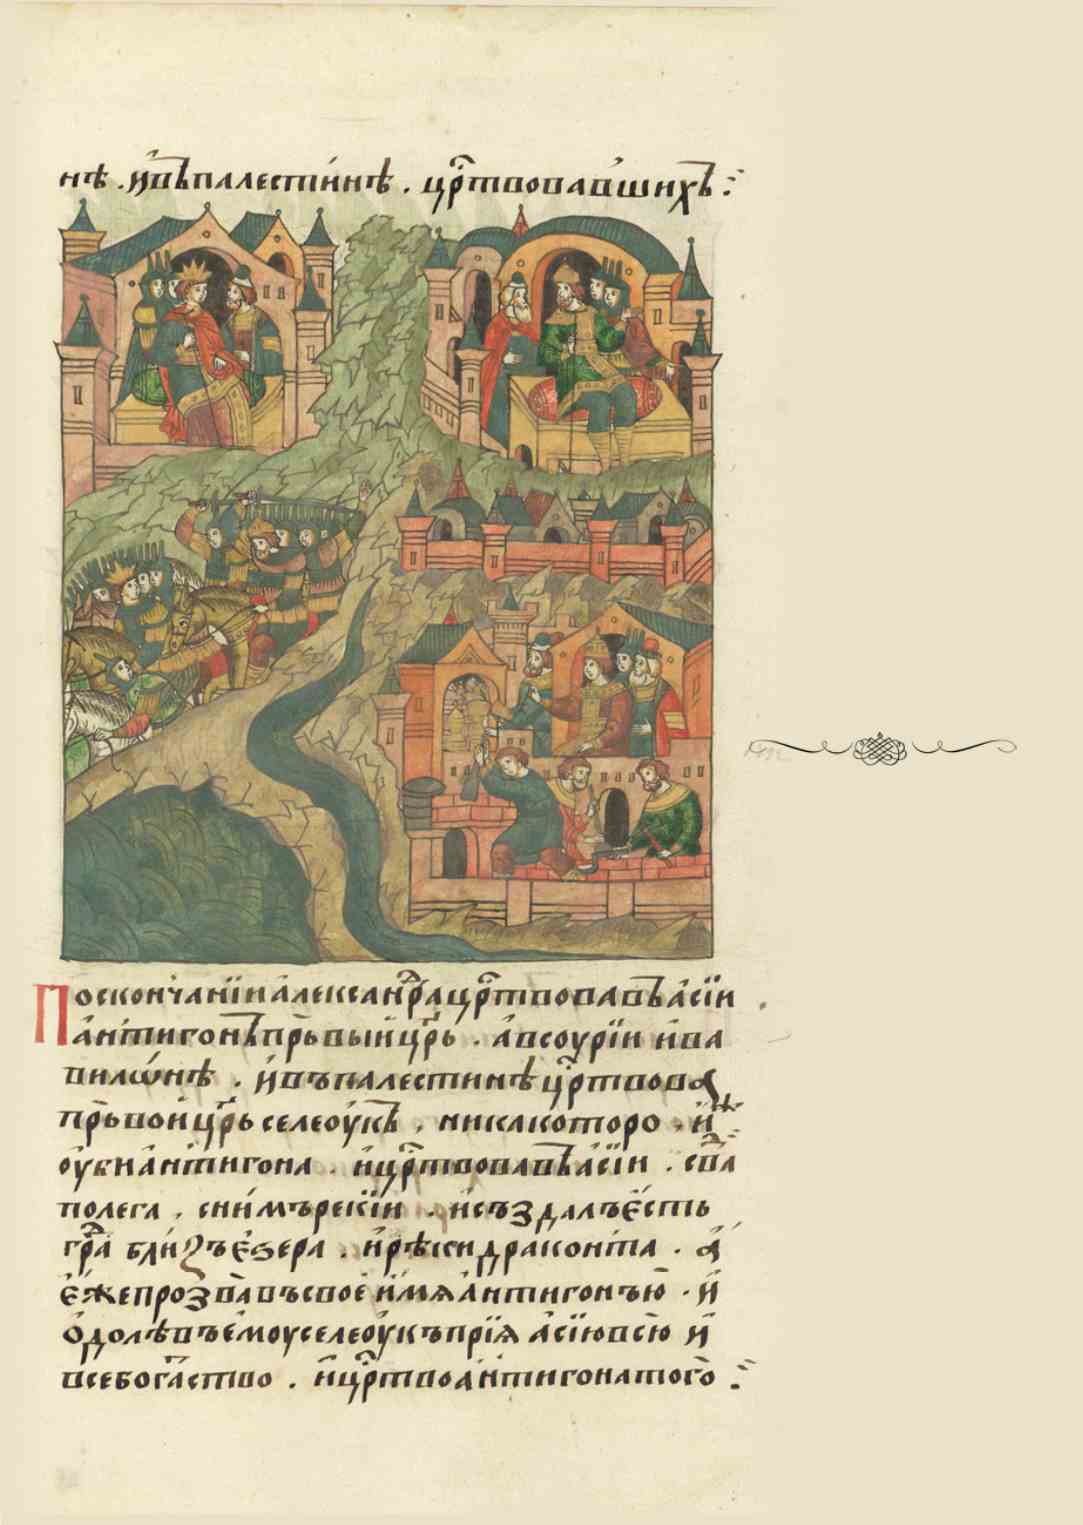 нѣ . и҆въпалести́нѣ . цр҇твова́вшихъ :·
Посконча́нїи а҆леѯа́ндра цр҇твовавъ а҆сїи
а҆нтиго́нъ пръвыи цр҇ь . а҆ в соурїи и҆ ва
вилѡ́нѣ . и҆ въ палестинѣ цр҇твова
пръвои цр҇ь селеоу́къ . никакоторо . и҆ж
оуби а҆нтиго́на . и҆ цр҇твовавъ а҆сїи . сва
полега . сни́мъ рекїи . и҆ създалъ є҆сть
гра бли́зъ є҆зера . и҆ рѣки драконта . а҆
є҆же прозва́въ своѐ и҆мя а҆нтигонъю . и҆
ѻ҆долѣвъ є҆моу селеоу́къ прїя а҆сїю всю̀ и҆
все бога́ство . и҆ цр҇тво а҆нтигона того̀ :·